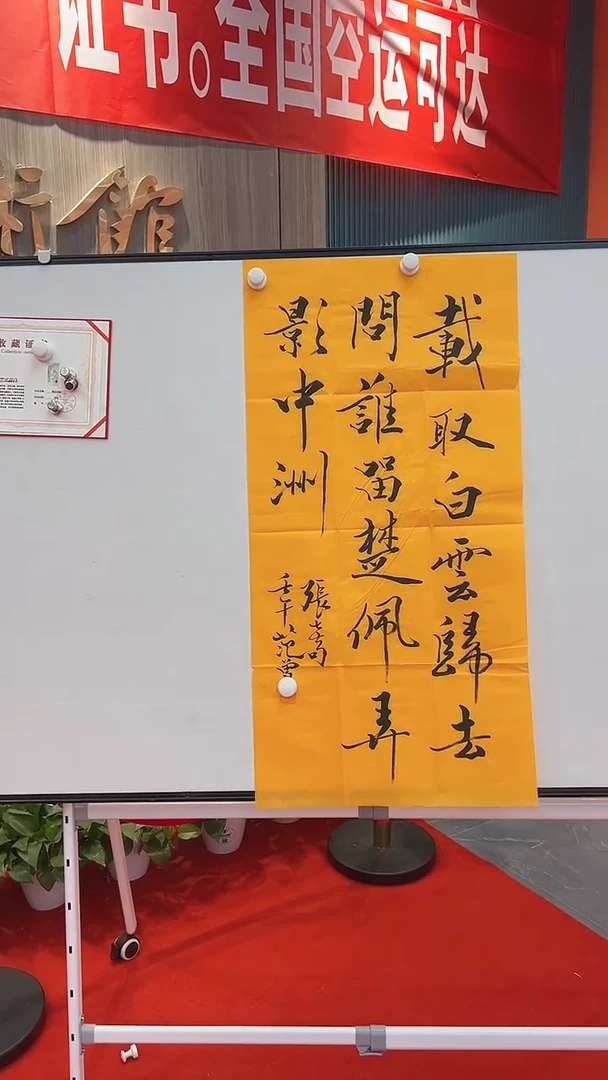 证书。全国空运可达
術館
收藏证
載取白雲歸去
問誰留楚佩弄
影中洲
張炎句
壬午范曾